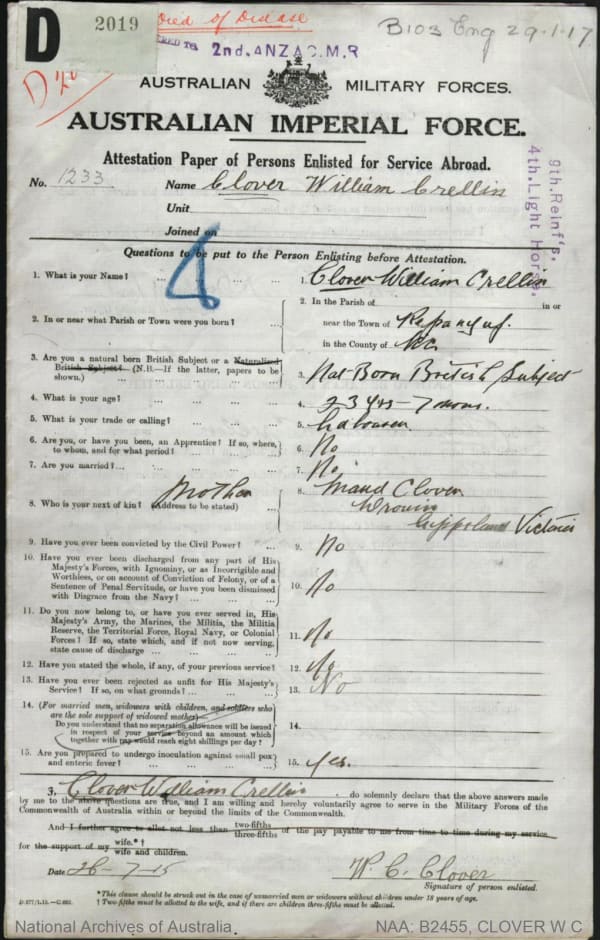 D
2019
Died of Disease
2nd. ANZAC. M. R
B103 Eng 29.1.17
AUSTRALIAN MILITARY FORCES.
AUSTRALIAN IMPERIAL FORCE.
Attestation Paper of Persons Enlisted for Service Abroad.
9th. Reinf's.
4th. Light Horse.
No. 1233 Name Clover William Crellin
Unit
Joined on
8
Questions to be put to the Person Enlisting before Attestation.
1. What is your Name? ... ... ... 1. Clover William Crellin
2. In or near what Parish or Town were you born? ... 2. In the Parish of in or
near the Town of
in the County of Vic
3. Are you a natural born British Subject or a Naturalized
British Subject? (N.B.—If the latter, papers to be
shown.) ... ... 3. Nat Born British Subject
4. What is your age? ... ... ... 4. 23 yrs – 7 mons.
5. What is your trade or calling? ... ... 5. Labourer
6. Are you, or have you been, an Apprentice? If so, where,
to whom, and for what period? ... ... 6. No
7. Are you married? ... ... ... 7. No
8. Who is your next of kin? (Address to be stated) Mother 8. Maud Clover
Drouin
Gippsland Victoria
9. Have you ever been convicted by the Civil Power? ... 9. No
10. Have you ever been discharged from any part of His
Majesty's Forces, with Ignominy, or as Incorrigible and
Worthless, or on account of Conviction of Felony, or of a
Sentence of Penal Servitude, or have you been dismissed
with Disgrace from the Navy? ... ... ... 10. No
11. Do you now belong to, or have you ever served in, His
Majesty's Army, the Marines, the Militia, the Militia
Reserve, the Territorial Force, Royal Navy, or Colonial
Forces? If so, state which, and if not now serving,
state cause of discharge ... ... ... 11. No
12. Have you stated the whole, if any, of your previous service? 12. No
13. Have you ever been rejected as unfit for His Majesty's
Service? If so, on what grounds? ... ... 13. No
14. (For married men, widowers with children, and soldiers who
are the sole support of widowed mother)
Do you understand that no separation allowance will be issued
in respect of your service beyond an amount which
together with pay would reach eight shillings per day? 14.
15. Are you prepared to undergo inoculation against small pox
and enteric fever? ... ... ... 15. Yes.
I, Clover William Crellin, do solemnly declare that the above answers made
by me to the above questions are true, and I am willing and hereby voluntarily agree to serve in the Military Forces of the
Commonwealth of Australia within or beyond the limits of the Commonwealth.
And I further agree to allot not less than two-fifths three-fifths of the pay payable to me from time to time during my service
for the support of my wife.*† wife and children.
Date 26-7-15 W. C. Clover
Signature of person enlisted.
* This clause should be struck out in the case of unmarried men or widowers without children under 18 years of age.
† Two-fifths must be allotted to the wife, and if there are children three-fifths must be allotted.
National Archives of Australia NAA: B2455, CLOVER W C